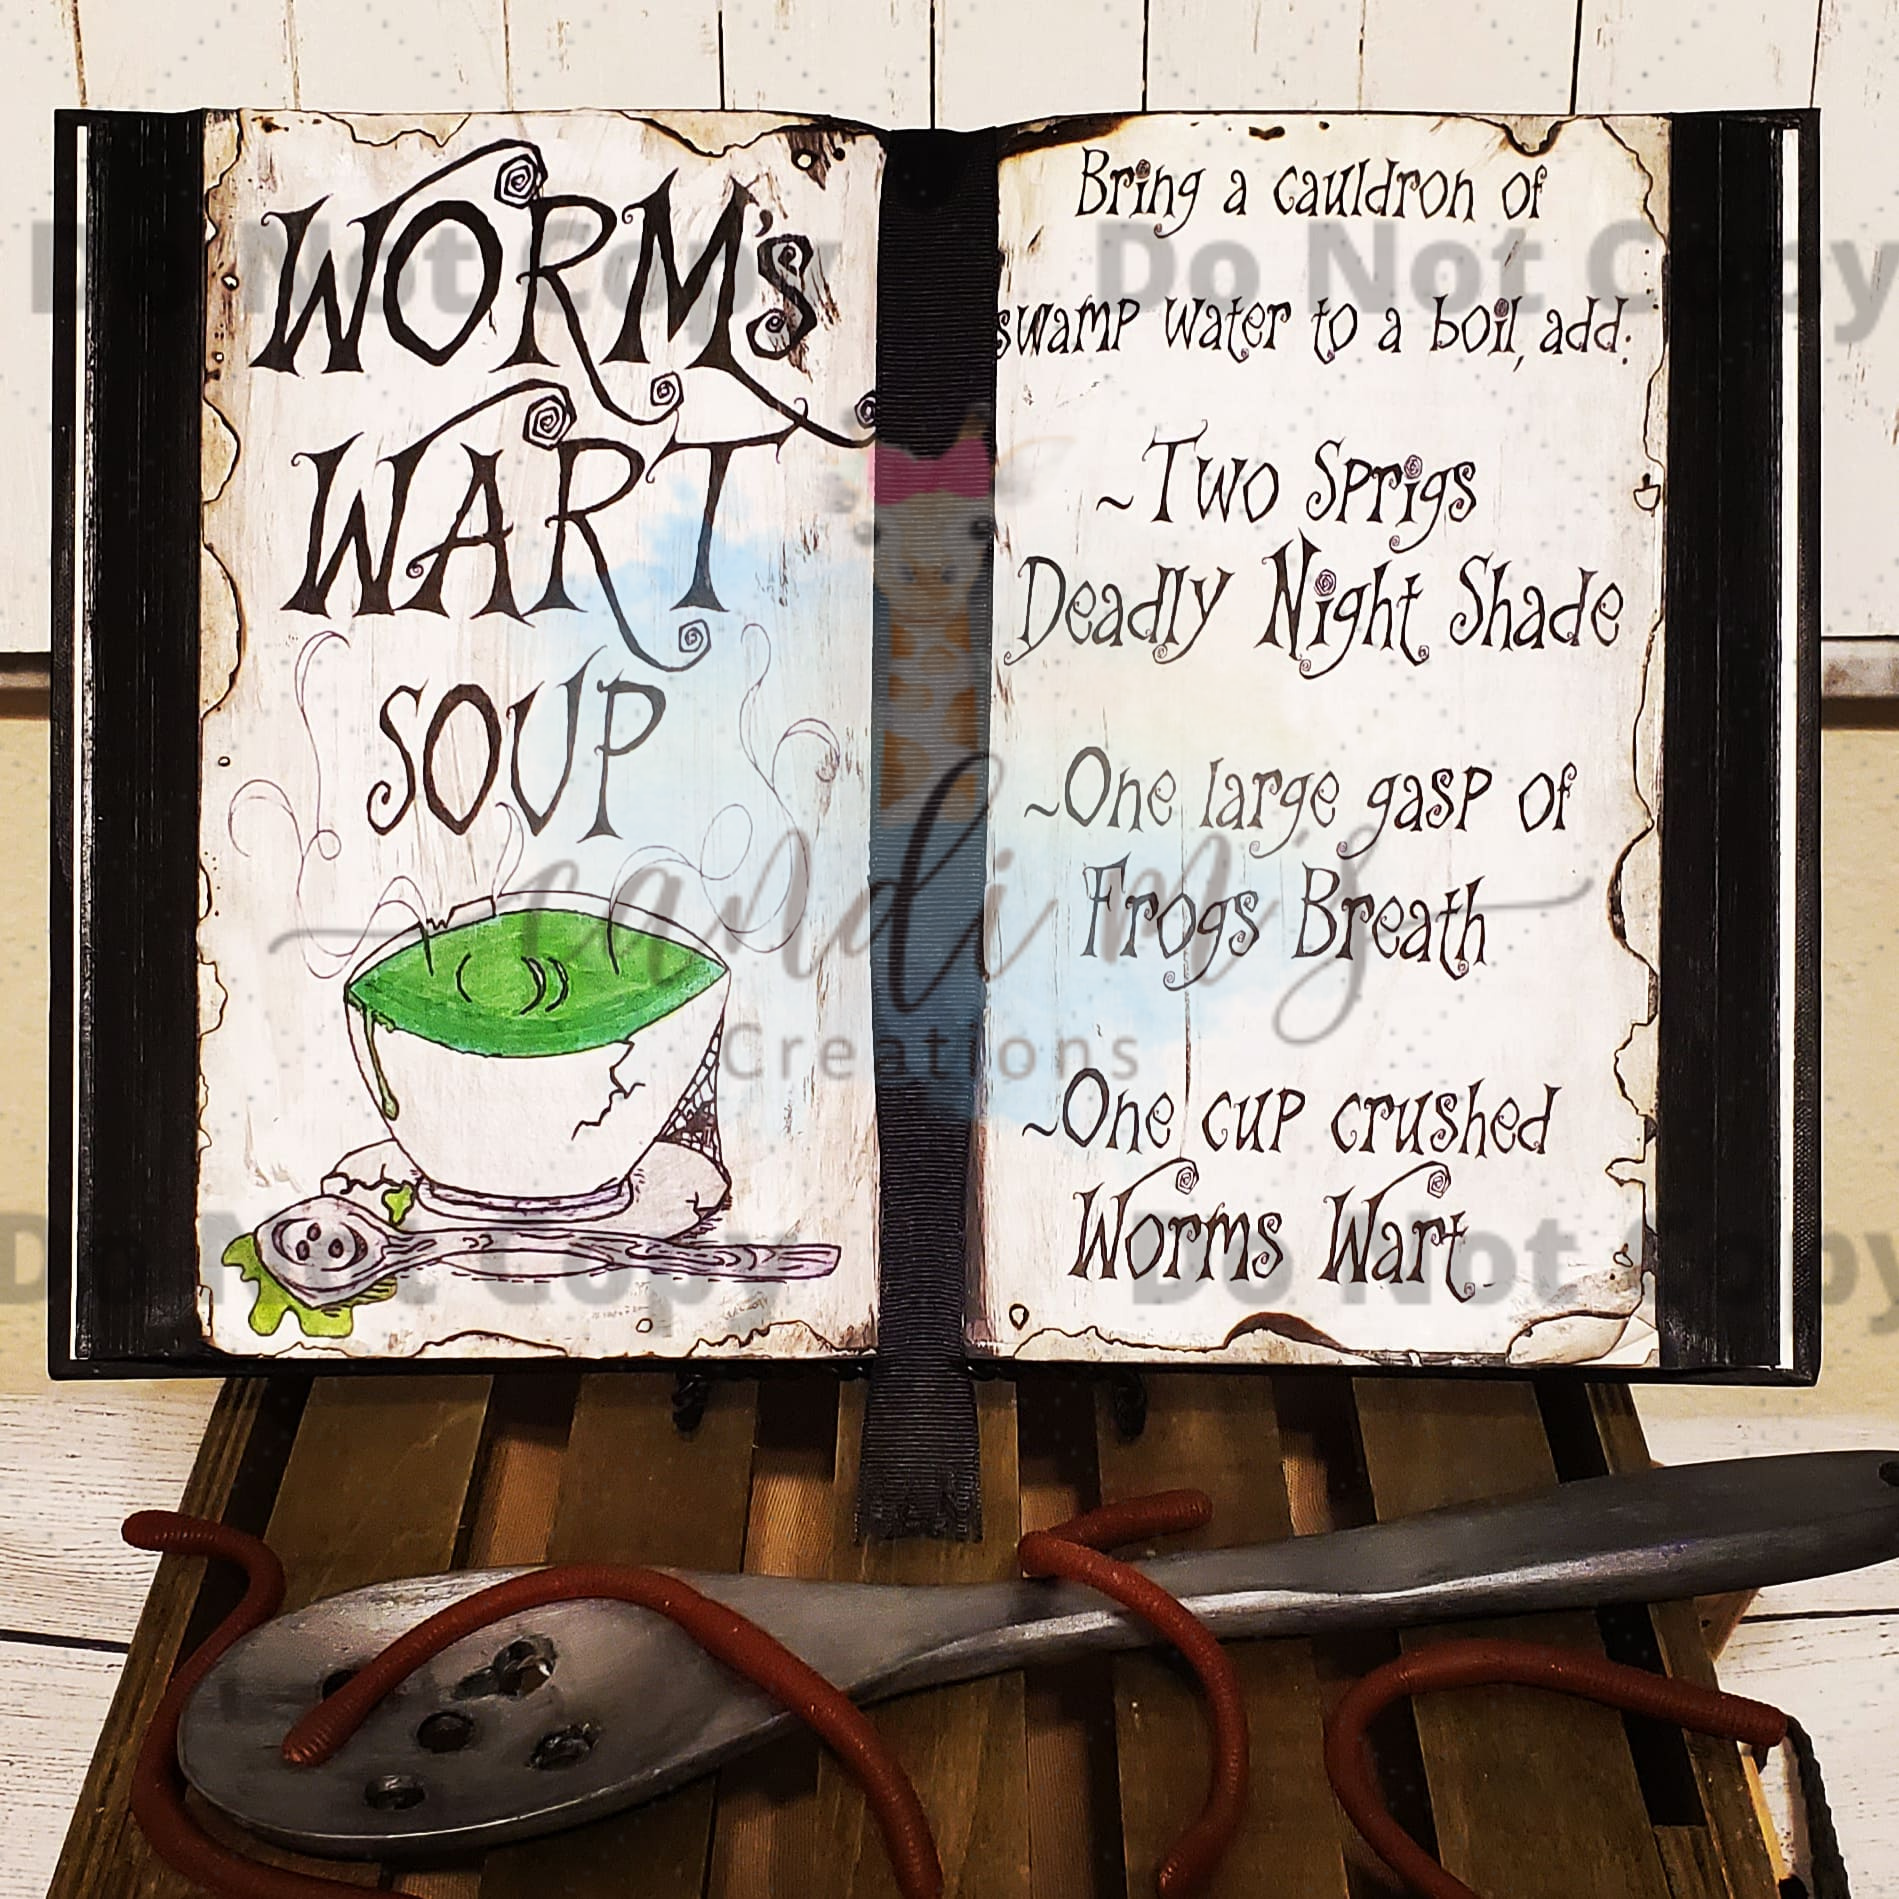 WORM's
WART
SOUP
Bring a cauldron of
swamp water to a boil, add:
~Two Sprigs
Deadly Night Shade
~One large gasp of
Frogs Breath
~One cup crushed
Worms Wart
Do Not Copy
Do Not Copy
candi m's
Creations
Do Not Copy
Do Not Copy